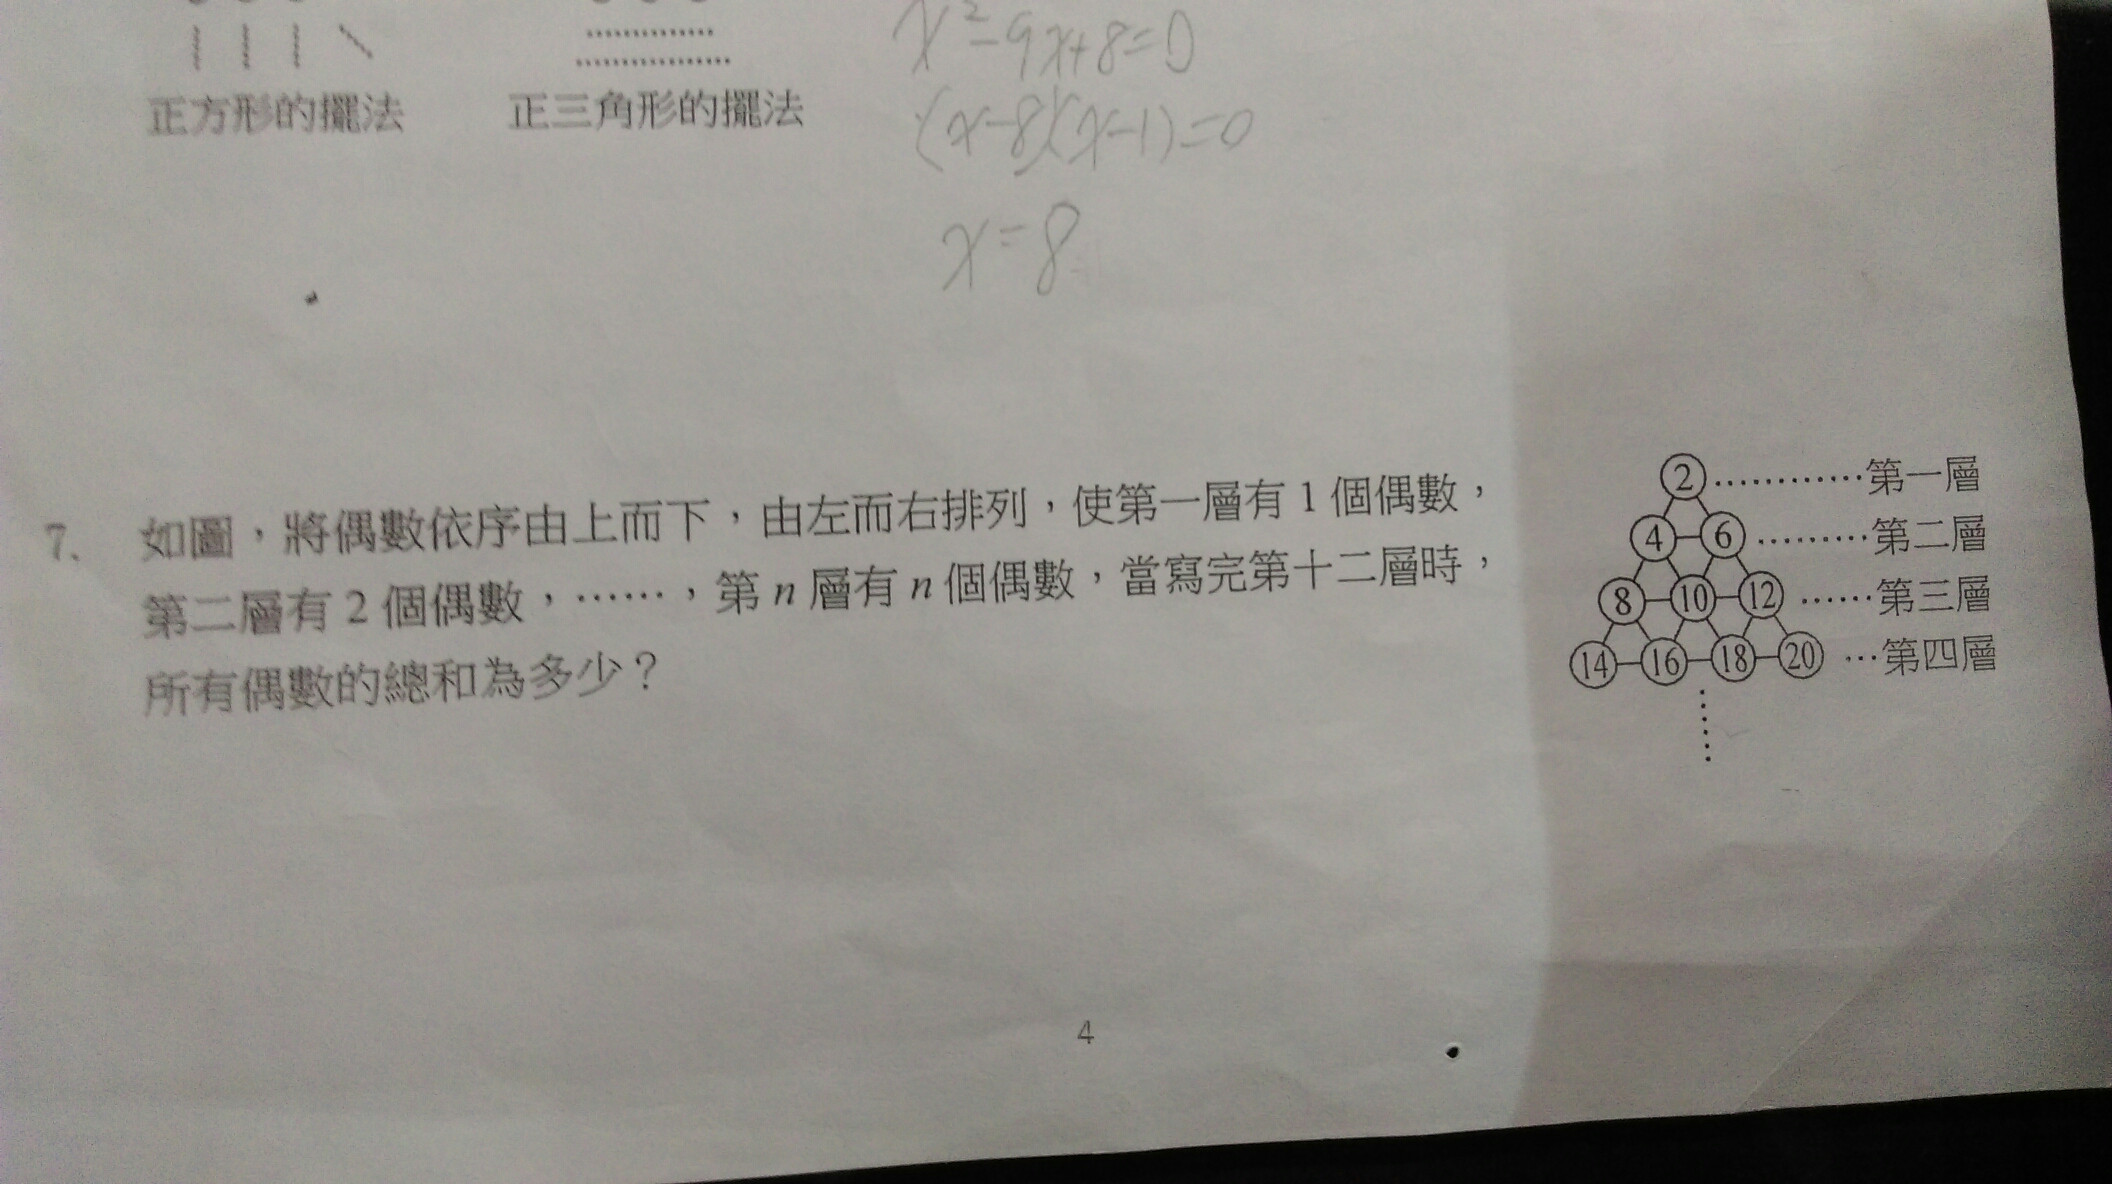 正方形的擺法 正三角形的擺法
x²-9x+8=0
(x-8)(x-1)=0
x=8
7、 如圖，將偶數依序由上而下，由左而右排列，使第一層有 1 個偶數，
第二層有 2 個偶數，……，第 n 層有 n 個偶數，當寫完第十二層時，
所有偶數的總和為多少？
2 …………第一層
4 6 ………第二層
8 10 12 ……第三層
14 16 18 20 …第四層
4